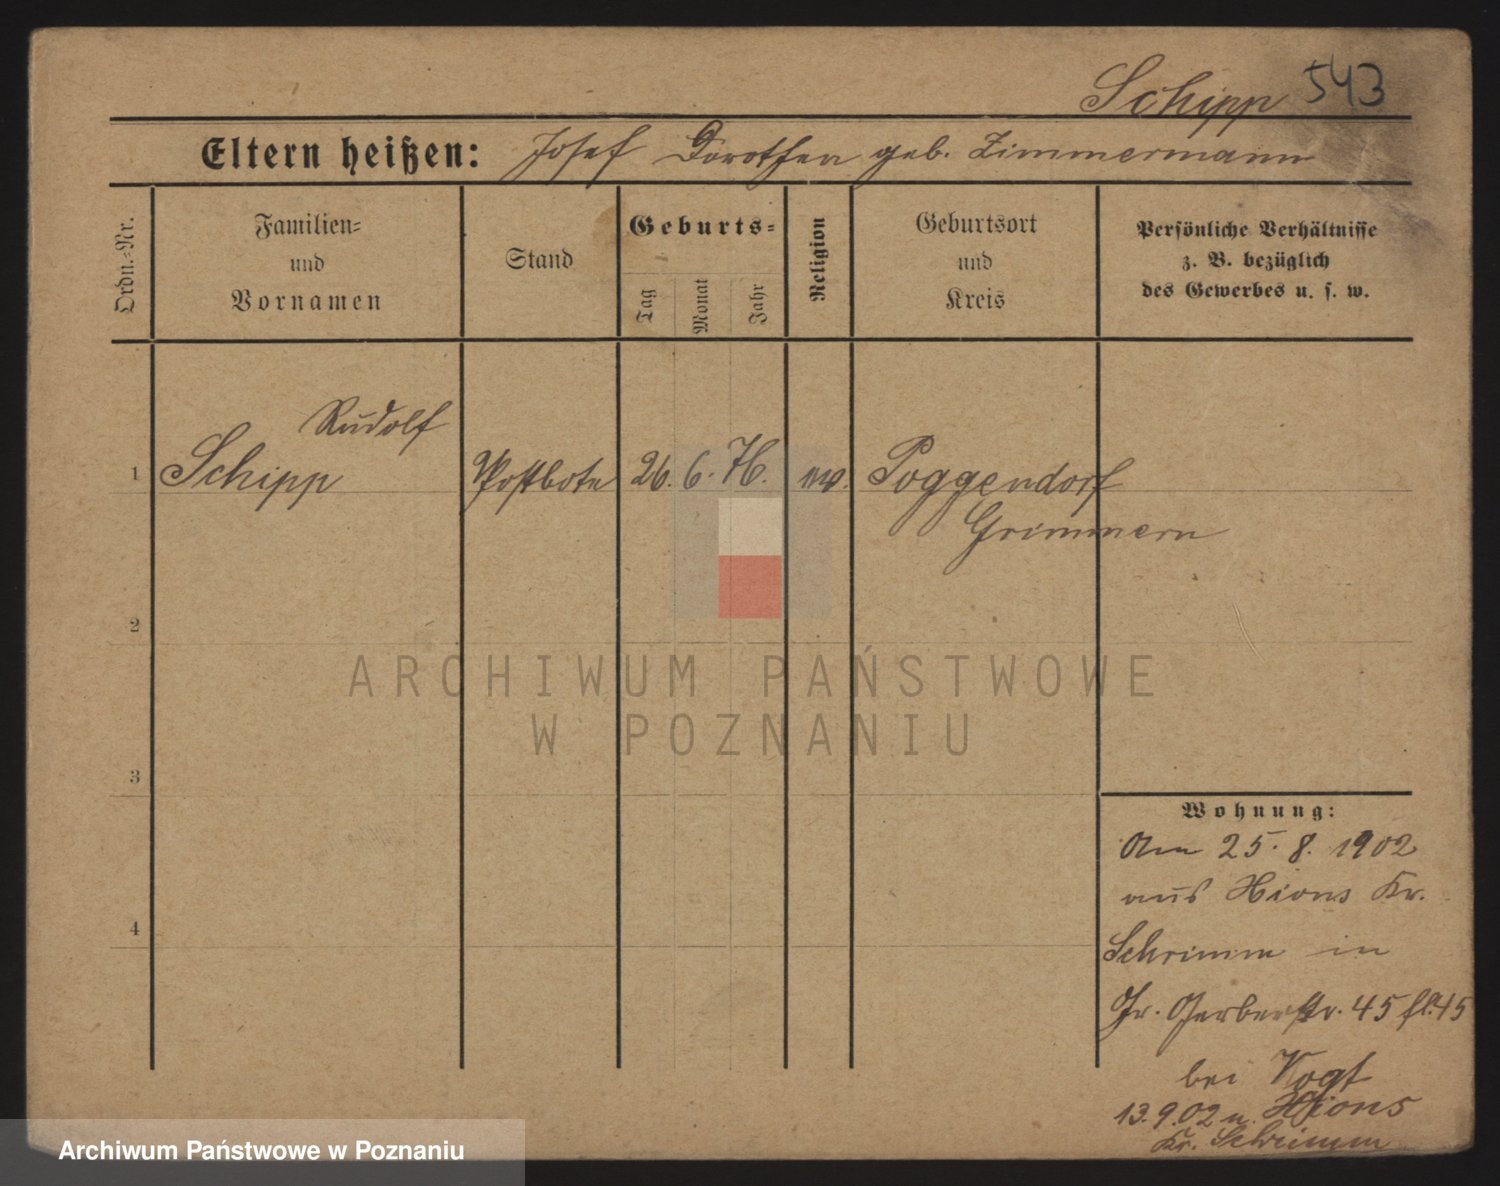 Schipp 543
Eltern heißen: Josef Dorothea geb. Zimmermann
Ordn.-Nr.
Familien-
und
Vornamen
Stand
Geburts-
Tag
Monat
Jahr
Religion
Geburtsort
und
Kreis
Persönliche Verhältnisse
z. B. bezüglich
des Gewerbes u. s. w.
Rudolf
1 Schipp Postbote 26. 6. 76. ev. Poggendorf
Grimmern
2
ARCHIWUM PAŃSTWOWE
W POZNANIU
3
Wohnung:
Am 25. 8. 1902
aus Hions Kr.
4
Schrimm in
Gr. Gerberstr. 45
bei Vogt
13.9.02 n. Hions
Kr. Schrimm
Archiwum Państwowe w Poznaniu